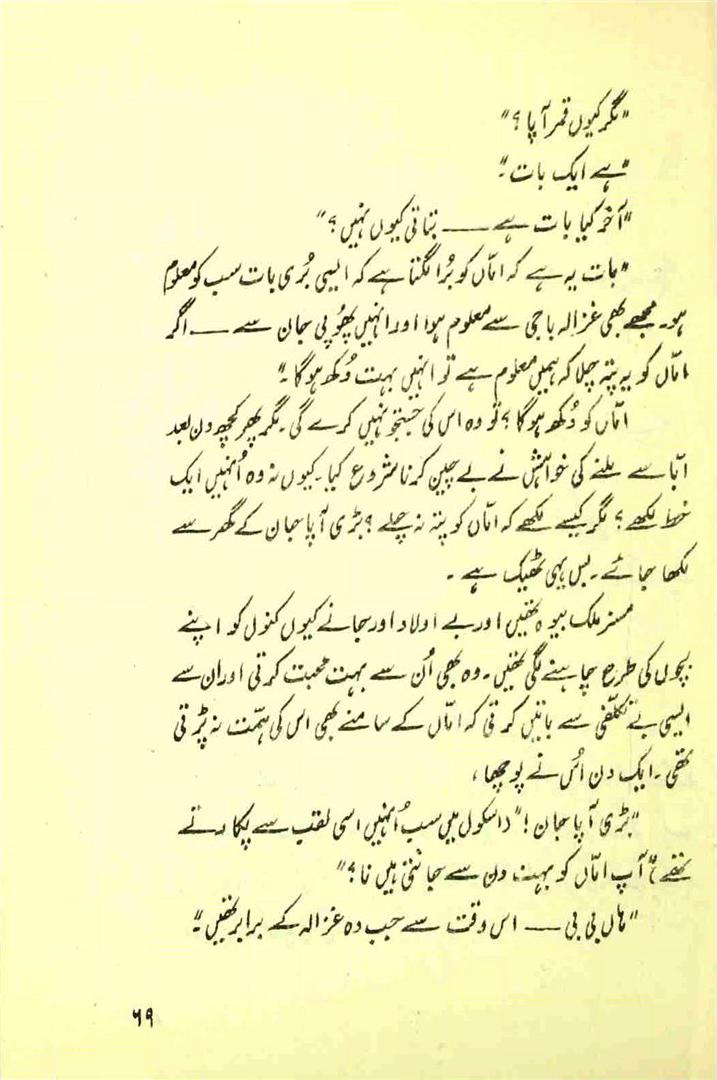 "مگر کیوں قمر آپا؟"
"ہے ایک بات۔"
"آخر کیا بات ہے —— بتاتی کیوں نہیں؟"
"بات یہ ہے کہ امّاں کو بُرا لگتا ہے کہ ایسی بُری بات سب کو معلوم
ہو۔ مجھے بھی غزالہ باجی سے معلوم ہوا اور انہیں پھوُپی جان سے —— اگر
امّاں کو یہ پتہ چلا کہ ہمیں معلوم ہے تو انہیں بہت دُکھ ہو گا۔"
امّاں کو دُکھ ہو گا؟ تو وہ اس کی جستجو نہیں کرے گی۔ مگر پھر کچھ دن بعد
ابّا سے ملنے کی خواہش نے بے چین کرنا شروع کیا۔ کیوں نہ وہ اُنہیں ایک
خط لکھے؟ مگر کیسے لکھے کہ امّاں کو پتہ نہ چلے؟ بڑی آپا جان کے گھر سے
لکھا جائے۔ بس یہی ٹھیک ہے۔
مسز ملک بیوہ تھیں اور بے اولاد اور جانے کیوں کنول کو اپنے
بچوں کی طرح چاہنے لگی تھیں۔ وہ بھی اُن سے بہت محبت کرتی اور ان سے
ایسی بے تکلّفی سے باتیں کرتی کہ امّاں کے سامنے بھی اس کی ہمّت نہ پڑتی
تھی۔ ایک دن اُس نے پوچھا،
"بڑی آپا جان!" (اسکول میں سب اُنہیں اسی لقب سے پکارتے
تھے) "آپ امّاں کو بہت دن سے جانتی ہیں نا؟"
"ہاں بی بی —— اس وقت سے جب وہ غزالہ کے برابر تھیں۔"
۶۹